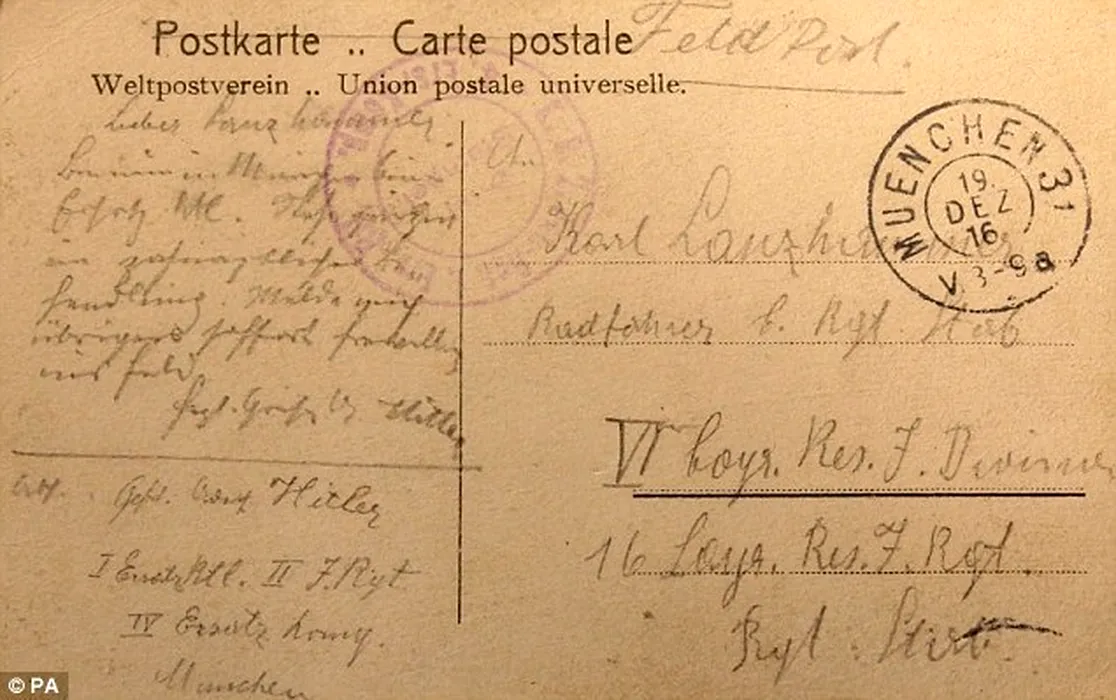 Postkarte .. Carte postale
Weltpostverein .. Union postale universelle.
Feld Post.
MUENCHEN 31
19.
DEZ
16
V 8-9 a
Lieber Lanzhammer
Bin nun in München beim
Ersatz Btl. Stehe zur Zeit
in zahnärztlicher Be
handlung. Melde mich
übrigens soffort freiwillig
ins Feld.
Hitler
Abs. Gefr. Adolf Hitler
I Ersatz Btl. II J. Rgt
IV Ersatz Komp.
München
An
Karl Lanzhammer
Radfahrer b. Rgt Stab
VI bayr. Res. J. Division
16 bayr. Res. J. Rgt.
Rgt. Stab.
© PA